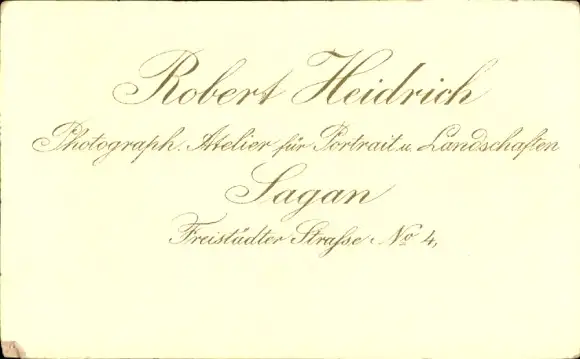 Robert Heidrich
Photograph. Atelier für Portrait u. Landschaften
Sagan
Freistädter Straſse No 4,